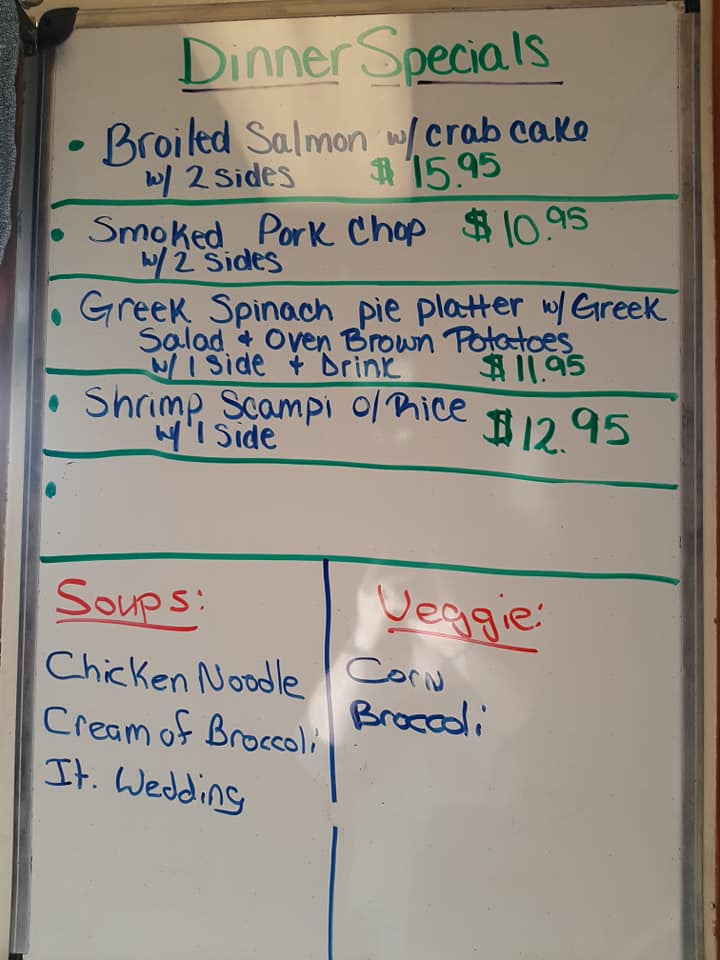 Dinner Specials
• Broiled Salmon w/ crab cake
w/ 2 sides $ 15.95
• Smoked Pork Chop $ 10.95
w/ 2 sides
• Greek Spinach pie platter w/ Greek
Salad + Oven Brown Potatoes
w/ 1 side + Drink $ 11.95
• Shrimp Scampi o/ Rice $ 12.95
w/ 1 Side
•
Soups:
Chicken Noodle
Cream of Broccoli
It. Wedding
Veggie:
Corn
Broccoli